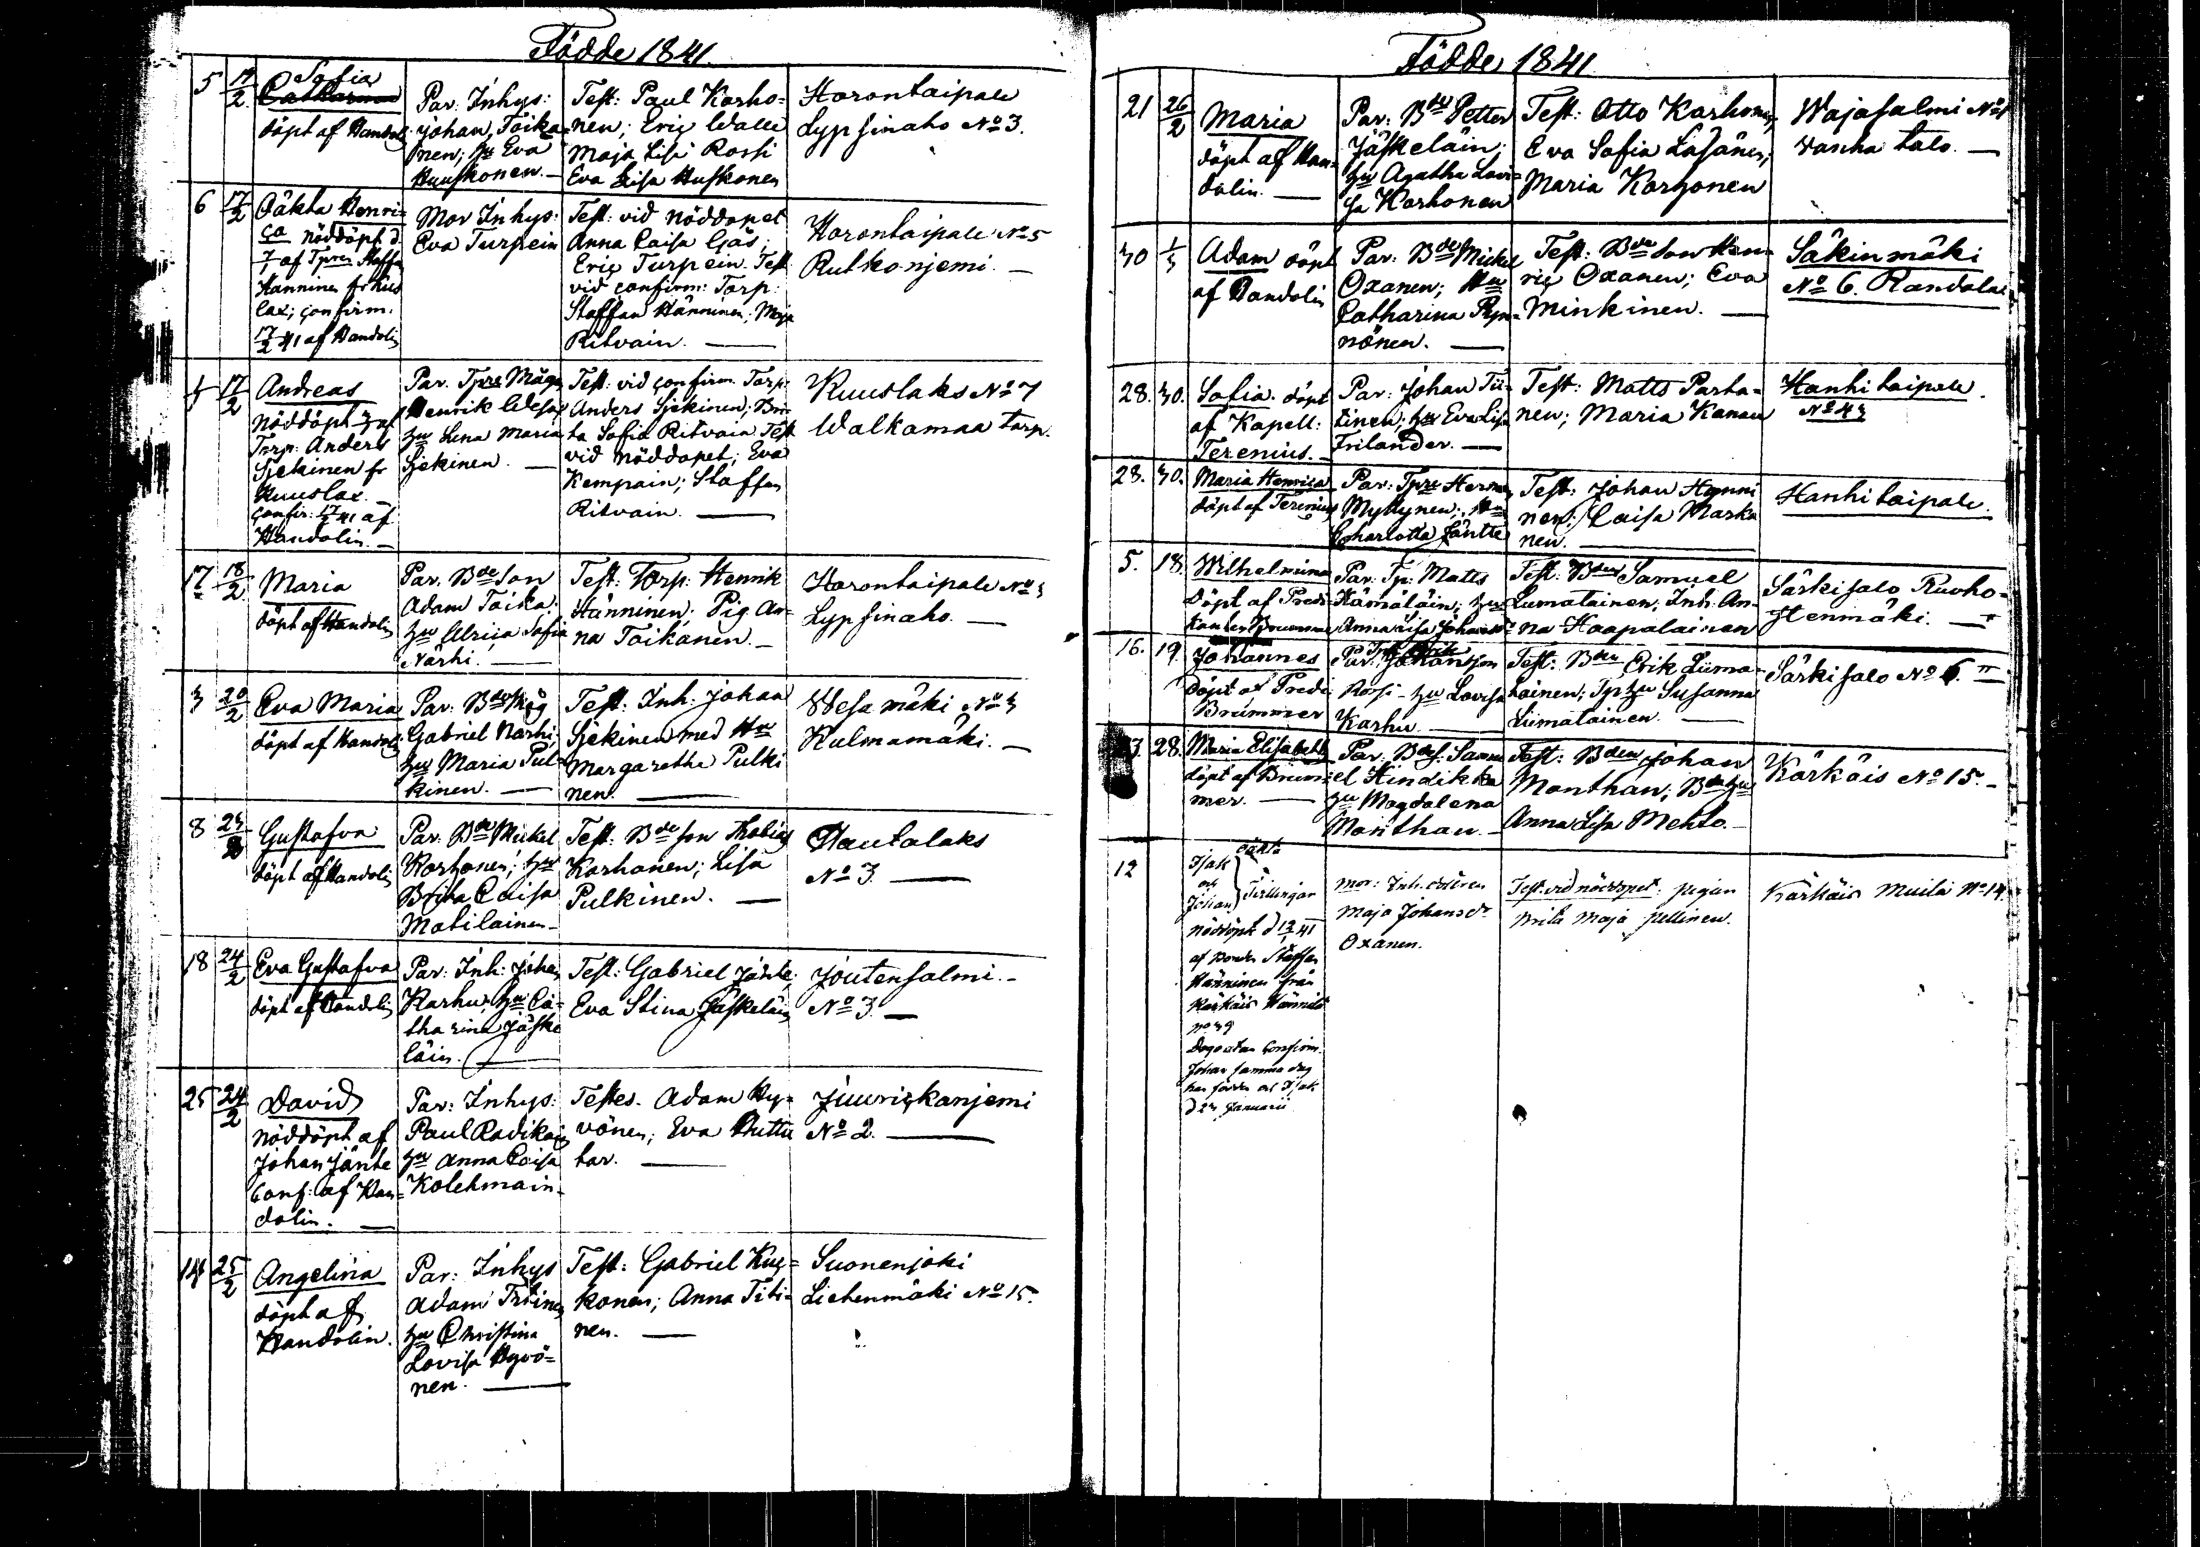 Födde 1841.
5 17/2 Sofia
Catharina
döpt af Handol:
Par: Inhys:
Johan Toika-
nen; hu Eva
Huuskonen.—
Test: Paul Korho=
nen; Eric Walle
Maja Lisa Rossi
Eva Lisa Huskonen
Harontaipale
Lypsinaho No 3.
6 17/2 Oäkta Henri=
ca nöddöpt d.
af Tpren Staffan
Hänninen fr Kuus
lax; confirm.
17/2 41 af Handolin
Mor Inhys:
Eva Turpein
Test: vid nöddopet
Anna Caisa Gäs;
Eric Turpein. Test
vid confirm: Torp:
Staffan Hänninen; Maja
Ritvain. —
Harontaipale No 5
Rutkonjemi. —
17/2 Andreas
nöddöpt af
Torp: Anders
Sjekinen fr
Kuuslax.—
confir: 17/2 41 af
Handolin.—
Par. Tpre Måge
Henrik Wesa
hu Lena Maria
Sjekinen. —
Test: vid confirm. Torp:
Anders Sjekinen; Bri-
ta Sofia Ritvain. Test
vid nöddopet; Eva
Kempain; Staffan
Ritvain. —
Kuuslaks No 7
Walkamaa torp.
17 18/2 Maria
döpt af Handolin
Par. Bde Son
Adam Toika;
hu Ulrica Sofia
Närhi. —
Test: Torp: Henrik
Hänninen; Pig. An-
na Toikanen.—
Harontaipale No 3
Lypsinaho. —
3 20/2 Eva Maria
döpt af Handol:
Par: Bde Måg
Gabriel Närhi;
hu Maria Pul=
kinen. —
Test: Inh: Johan
Sjekinen med Hu
Margaretha Pulki
nen. —
Wesamäki No 3
Kulmamäki. —
8 23/2 Gustafva
döpt af Handolin
Par: Bde Mickel
Korhonen; hu
Brita Caisa
Matilainen—
Test: Bde son Thobias
Korhonen; Lisa
Pulkinen. —
Hautalaks
No 3. —
18 24/2 Eva Gustafva
döpt af Handolin
Par: Inh: Johan
Karhu; hu Ca-
tharina Jäske
läin. —
Test: Gabriel Jänte;
Eva Stina Jäskeläin
Joutensalmi.—
No 3. —
25 24/2 David
nöddöpt af
Johan Jänte
Conf: af Han=
dolin. —
Par: Inhys:
Paul Radikain
hu Anna Caisa
Kolehmain.
Testes. Adam Hy=
vönen; Eva Ruttu
tar. —
Juurickanjemi
No 2. —
14 25/2 Angelina
döpt af
Handolin.
Par: Inhys
Adam Tröinen
hu Christina
Lovisa Hyvö=
nen. —
Test: Gabriel Kuc=
konen; Anna Titi=
nen. —
Suonenjoki
Lietenmäki No 15.
Födde 1841
21 26/2 Maria
döpt af Han=
dolin. —
Par: Bde Petter
Jäskeläin;
hu Agatha Lovi=
sa Korhonen
Test: Otto Korhonen;
Eva Sofia Lasänen;
Maria Korhonen
Wajasalmi No 1
vanha talo. —
30 1/3 Adam döpt
af Handolin
Par: Bde Mickel
Oxanen; Hu
Catharina Pyn=
nönen. —
Test: Bde Son Hen
ric Oxanen; Eva
Minkinen. —
Säkinmäki
No 6. Randala
28. 30. Sofia. döpt
af Kapell:
Terenius.—
Par: Johan Tii-
tinen; hu Eva Lisa
Frilander. —
Test: Matts Parta=
nen; Maria Kanan
Hanhitaipale.
No 43
28. 30. Maria Henrica
döpt af Terenius
Par: Tpre Herman
Mykkynen; Hu
Charlotta Jäntte
Test: Johan Hynni
nen; Caisa Marka
nen. —
Hanhitaipale.
5. 18. Wilhelmina
döpt af Predi-
kanten Brummer
Par: Tp: Matts
Hämäläin; hu
Anna Lisa Johansdr
Test: Bden Samuel
Liimatainen; Inh. An-
na Haapalainen
Särkisalo Ruoho-
stenmäki. —
16. 19. Johannes
döpt af Predi
Brummer
Par: Inh Erik
Johansson
Rossi - hu Lovisa
Karhu. —
Test: Bden Erik Liima-
tainen; Tp hu Susanna
Liimatainen. —
Särkisalo No 6.
28. Maria Elisabeth
döpt af Brum-
mer. —
Par: Bdes: Samu
el Hindikka
hu Magdalena
Manthan.—
Test: Bden Johan
Manthan; Bde hu
Anna Lisa Mehto.—
Kärkäis No 15.—
12 oäkta
Isak
och
Johan
Tvillingar
nöddöpt d 13/1 41
af Bonden Staffan
Hänninen från
Kärkäis Hännilä
No 39
Dagen derpå confirm.
Johan samma dag
han föddes och Isak
d 23 Januarii
Mor: Inh. dottren
Maja Johansdr
Oxanen.
Test. vid nöddopet: pigan
Brita Maja Pellinen.
Kärkäis Muila No 14.